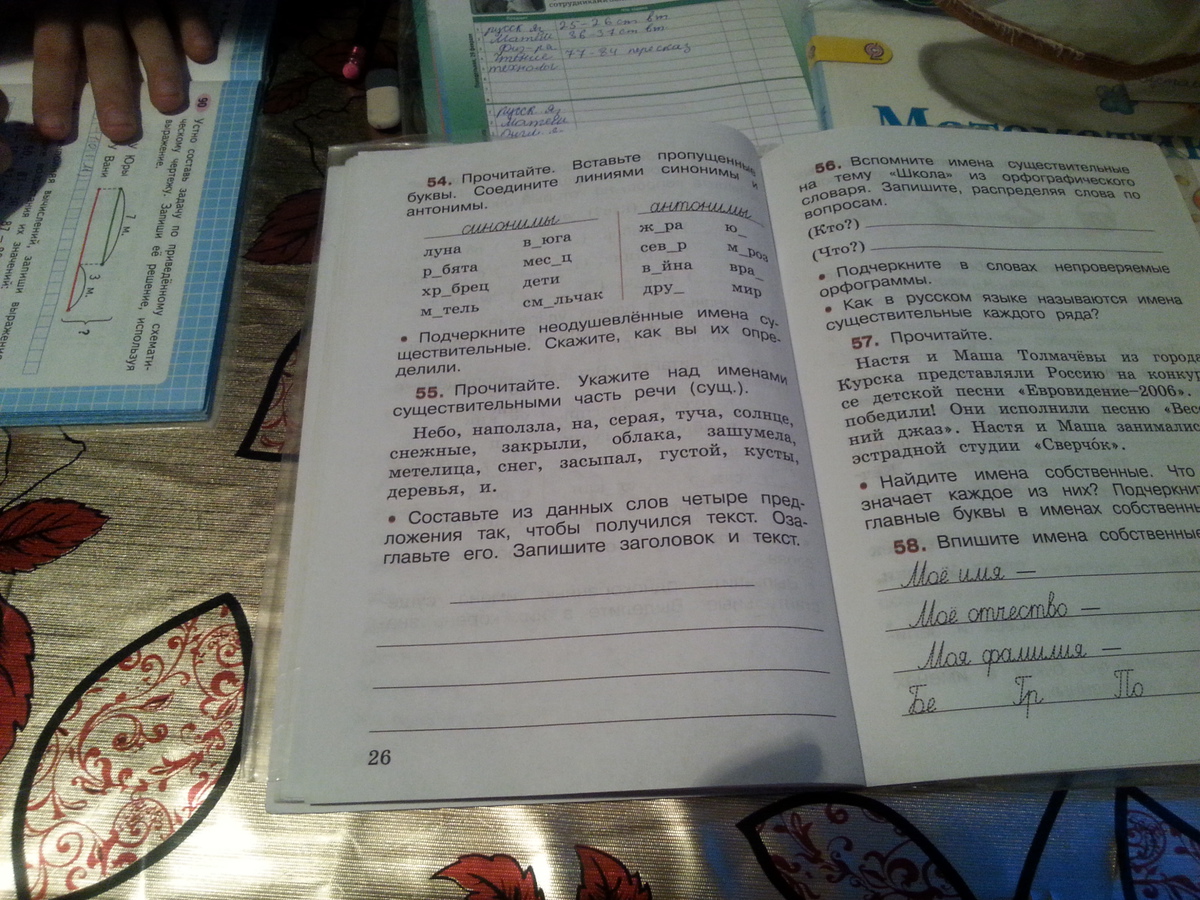 сотрудниками
русск я. 25-26 ст вт
Матем 36-37 ст вт
Физ-ра
чтение 77-84 пересказ
технолог
русск я.
матем
90 Устно составь задачу по приведённому схемати-
ческому чертежу. Запиши её решение, используя
выражение.
Юры
Вани
7 м.
3 м.
?
вычислений, запиши выражения
их значений:
Математик
54. Прочитайте. Вставьте пропущенные
буквы. Соедините линиями синонимы и
антонимы.
синонимы
луна в_юга
р_бята мес_ц
хр_брец дети
м_тель см_льчак
антонимы
ж_ра ю_
сев_р м_роз
в_йна вра_
дру_ мир
• Подчеркните неодушевлённые имена су-
ществительные. Скажите, как вы их опре-
делили.
55. Прочитайте. Укажите над именами
существительными часть речи (сущ.).
Небо, наползла, на, серая, туча, солнце,
снежные, закрыли, облака, зашумела,
метелица, снег, засыпал, густой, кусты,
деревья, и.
• Составьте из данных слов четыре пред-
ложения так, чтобы получился текст. Оза-
главьте его. Запишите заголовок и текст.
26
56. Вспомните имена существительные
на тему «Школа» из орфографического
словаря. Запишите, распределяя слова по
вопросам.
(Кто?)
(Что?)
• Подчеркните в словах непроверяемые
орфограммы.
• Как в русском языке называются имена
существительные каждого ряда?
57. Прочитайте.
Настя и Маша Толмачёвы из города
Курска представляли Россию на конкур
се детской песни «Евровидение–2006».
победили! Они исполнили песню «Вес
ний джаз». Настя и Маша занимались
эстрадной студии «Сверчо́к».
• Найдите имена собственные. Что
значает каждое из них? Подчеркнит
главные буквы в именах собственны
58. Впишите имена собственные
Моё имя —
Моё отчество —
Моя фамилия —
Бе Гр По